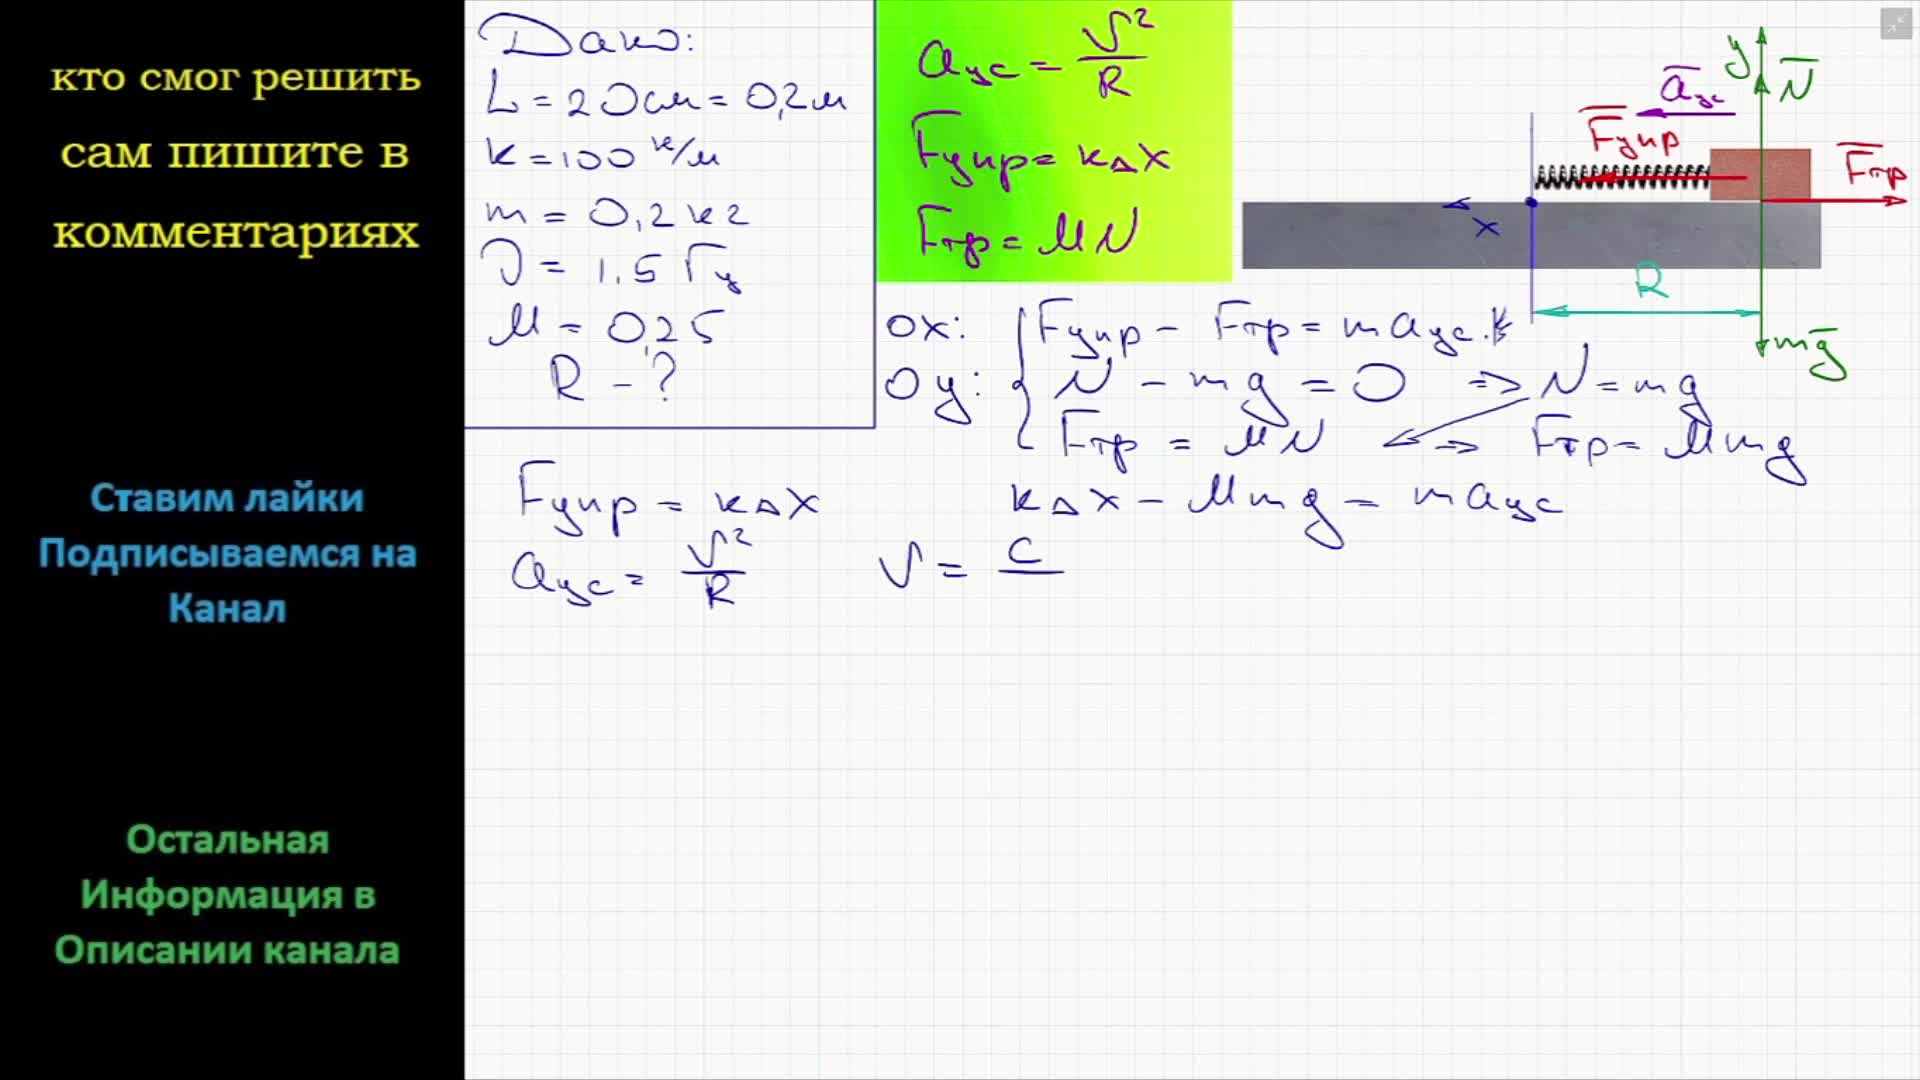 кто смог решить
сам пишите в
комментариях
Ставим лайки
Подписываемся на
Канал
Остальная
Информация в
Описании канала
Дано:
L = 20см = 0,2м
k = 100 н/м
m = 0,2 кг
ν = 1,5 Гц
μ = 0,25
R - ?
aцс = V²/R
Fупр = kΔx
Fтр = μN
y
N
aцс
Fупр
Fтр
x
R
mg
ox: Fупр - Fтр = m aцс.
oy: N - mg = 0 => N = mg
Fтр = μN => Fтр = μmg
Fупр = kΔx
kΔx - μmg = m aцс
aцс = V²/R
V = C